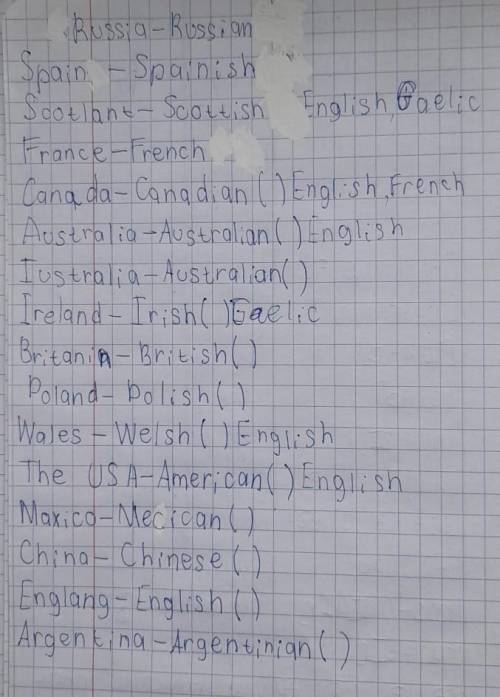 Russia-Russian
Spain - Spainish
Scotlant-Scottish English, Gaelic
France-French
Canada-Canadian ( ) English, French
Australia-Australian ( ) English
Iustralia-Australian ( )
Ireland-Irish ( ) Gaelic
Britanin-British ( )
Poland-Polish ( )
Wales-Welsh ( ) English
The USA-American ( ) English
Maxico-Mecican ( )
China-Chinese ( )
Englang-English ( )
Argentina-Argentinian ( )